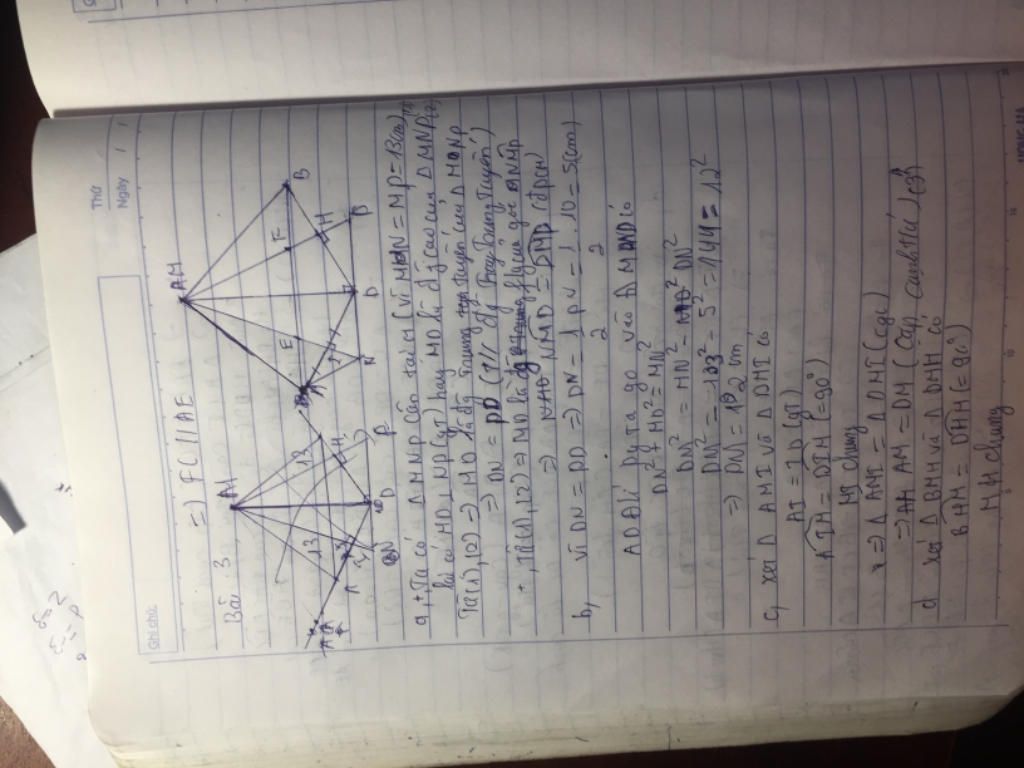 Thứ
Ngày
Ghi chú
=> FC // AE
Bài 3
A M
13
13
H
N
D
P
A M
B
F
E
H
N
D
P
a, +, Ta có Δ MNP cân tại M (vì MN = MP = 13cm)
lại có MD ⊥ NP (gt) hay MD là đg cao của Δ MNP (2)
Từ (1), (2) => MD là đg trung tuyến của Δ MNP
=> DN = PD (t/c đg trung tuyến)
+, Từ (1), (2) => MD là phân giác góc NMP
=> NMD = DMP (đpcm)
b, Vì DN = PD => DN = 1/2 PN = 1/2 . 10 = 5(cm)
AD Đ/l Py ta go vào Δ MND có
DN² + MD² = MN²
DN² = MN² - DN²
DN² = 13² - 5² = 144 = 12²
=> DN = 12 cm
c, xét Δ AMI và Δ DMI có
AI = ID (gt)
AIM = DIM (= 90°)
MI chung
=> Δ AMI = Δ DMI (cgc)
=> AM = DM (cặp cạnh t/ứ) (3)
d xét Δ BHM và Δ DHM có
BHM = DHM (= 90°)
MH chung